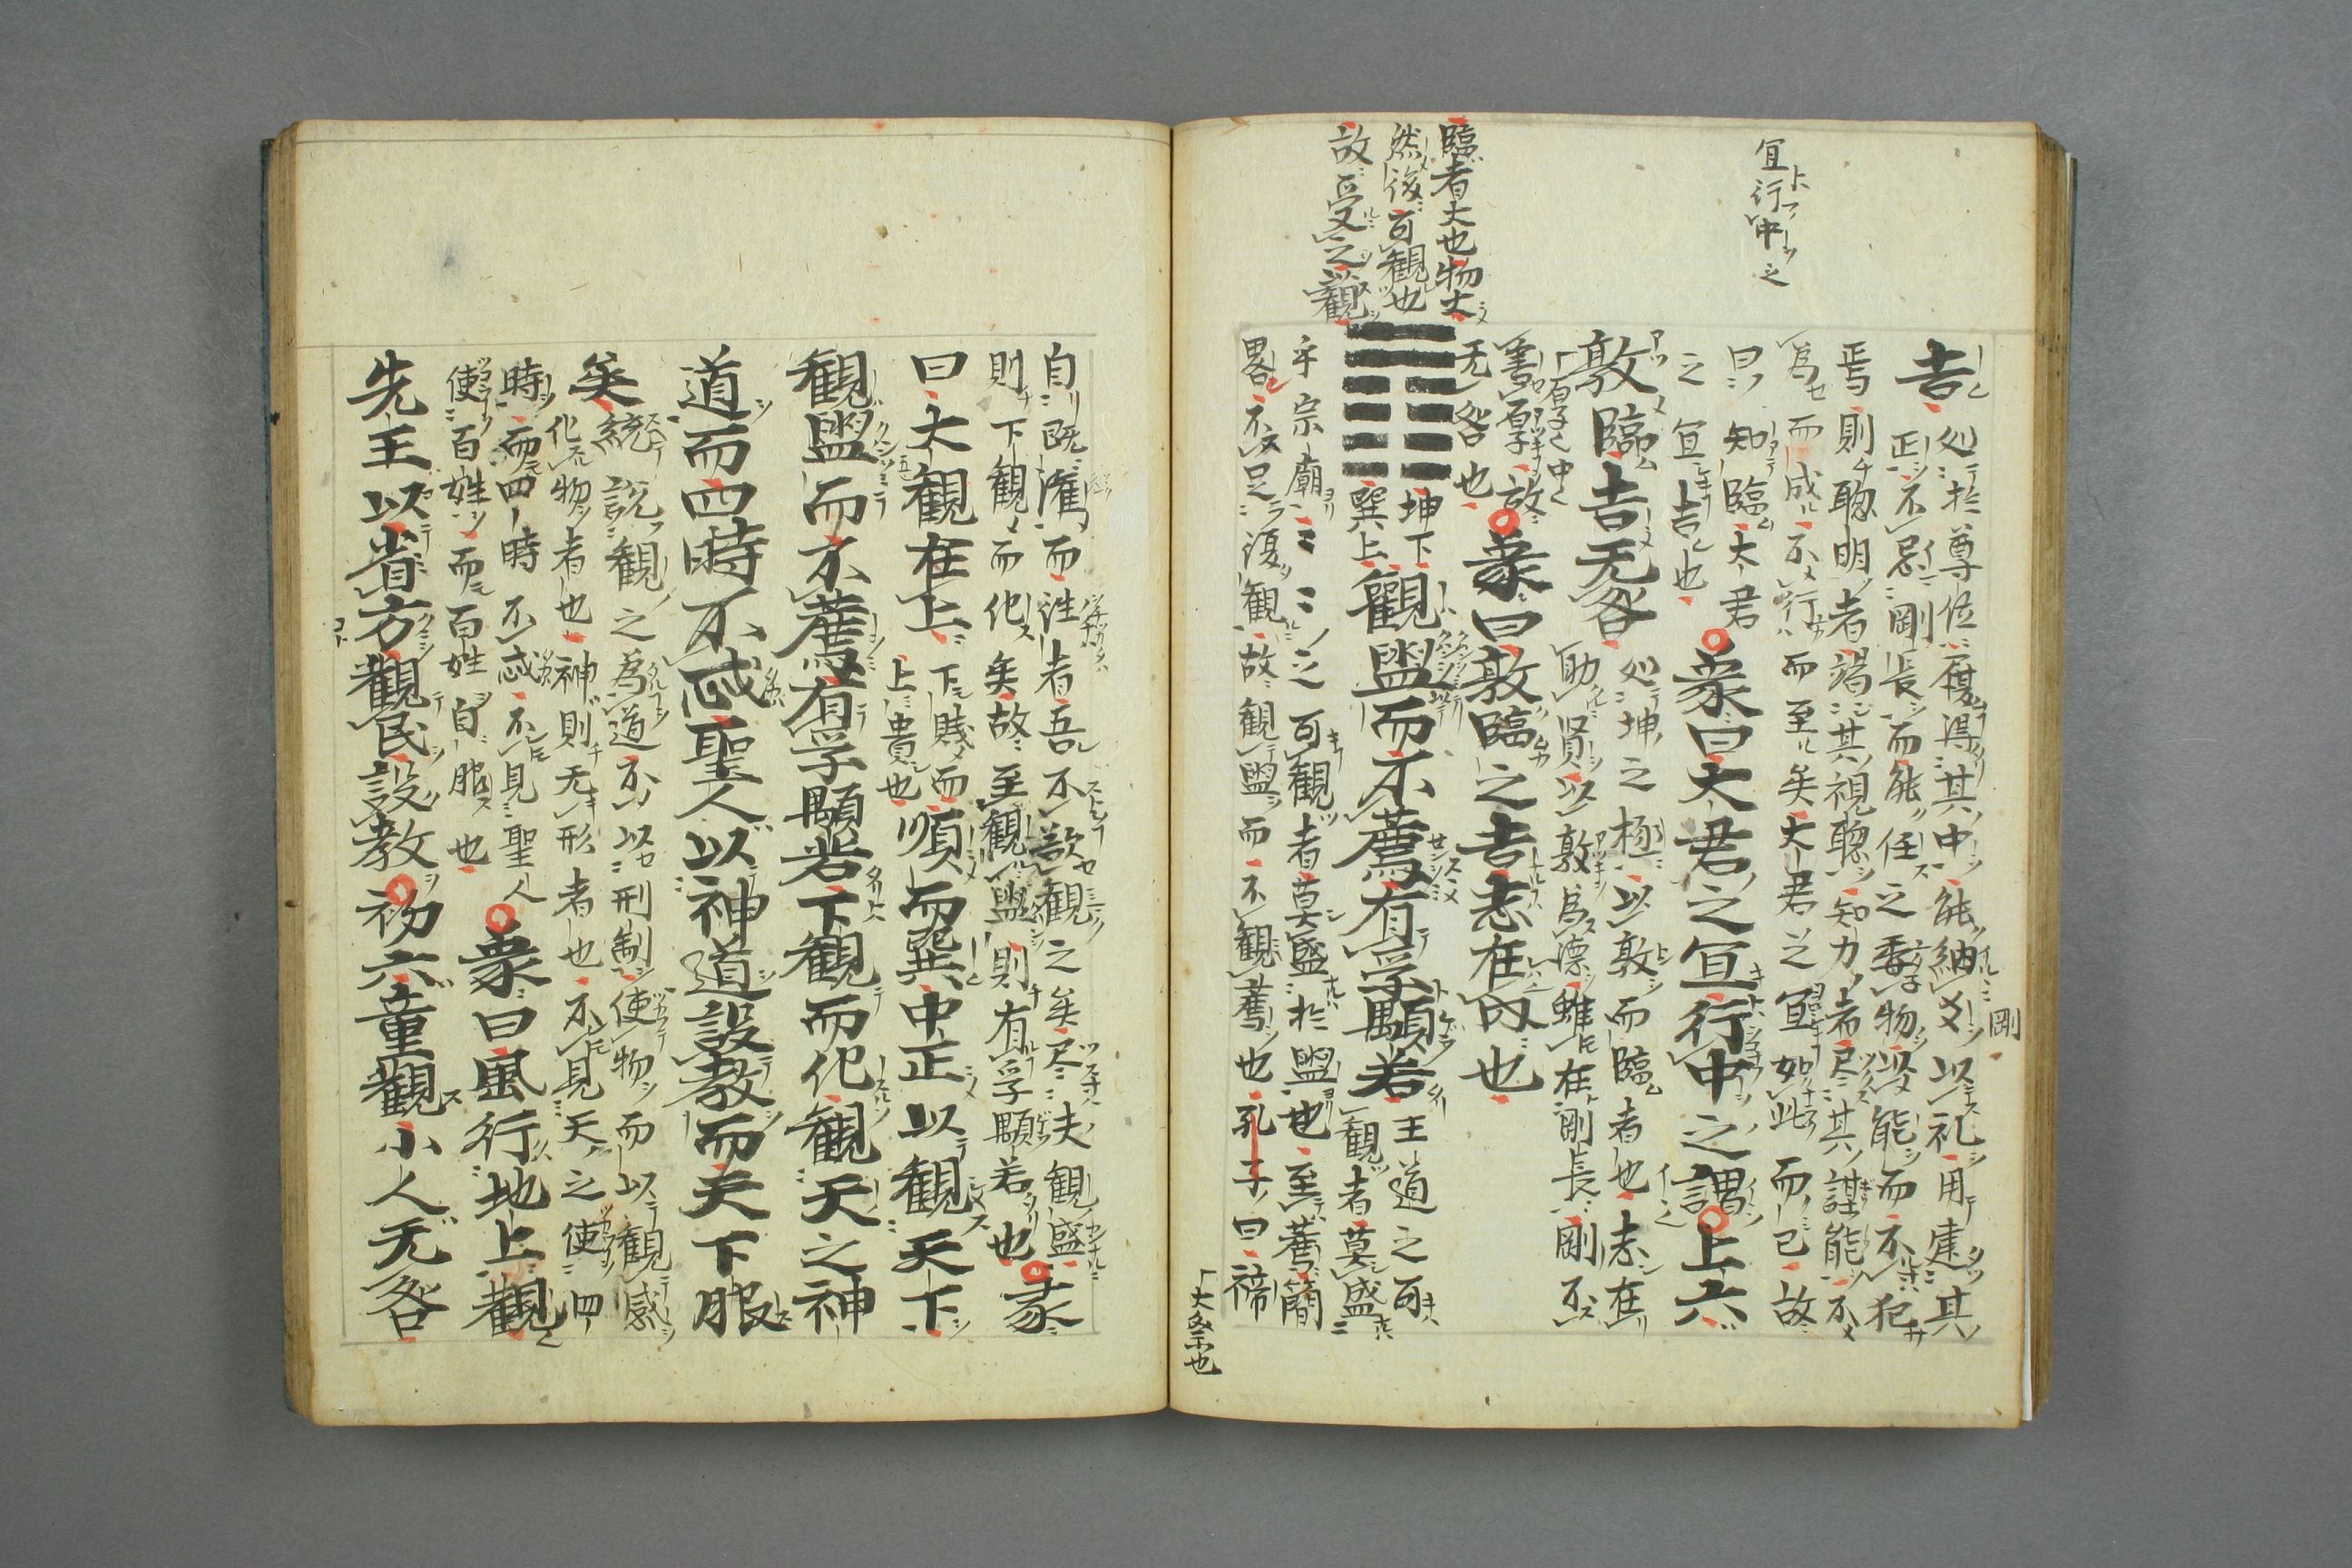 宜行中之
臨者大也物大
然後可觀也
故受之觀
吉
処於尊位履得其中能納剛以礼用建其
正不忌剛長而能任之委物以能而不犯
焉則聡明者竭其視聴知力者尽其謀能不
為而成不行而至矣大君之宜如此而已故
曰知臨大君
之宜吉也
象曰大君之宜行中之謂上六
敦臨吉无咎
処坤之極以敦而臨者也志在
助賢以敦為徳雖在剛長剛不
害厚故
无咎也
象曰敦臨之吉志在内也
坤下
巽上
觀盥而不薦有孚顒若
王道之可
観者莫盛
乎宗廟宗廟之可観者莫盛於盥也至薦簡
畧不足復観故観盥而不観薦也孔子曰禘
自既灌而往者吾不欲観之矣尽夫観盛
則下観而化矣故至観盥則有孚顒若也
彖
曰大観在上
下賤而
上貴也
順而巽中正以観天下
観盥而不薦有孚顒若下観而化観天之神
道而四時不忒聖人以神道設教而天下服
矣
統説観之為道不以刑制使物而以観感
化物者也神則无形者也不見天之使四
時而四時不忒不見聖人
使百姓而百姓自服也
象曰風行地上觀
先王以省方觀民設教初六童觀小人无咎